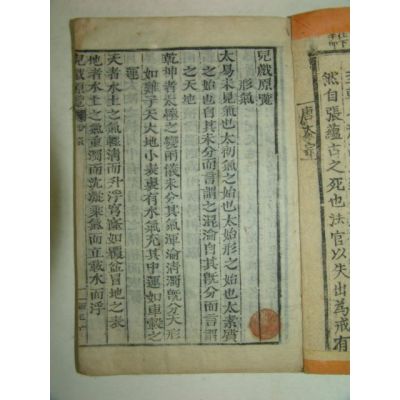 然自張蘊古之死也法官以失出為戒有
唐太宗
兒戲原覽
形氣
太易未見氣也太初氣之始也太始形之始也太素質
之始也自其未分而言謂之混淪自其旣分而言謂
之天地
乾坤者太極之變兩儀未分其氣渾淪清濁旣分大形
如雞子天大地小表裏有水氣充其中運如車轂之
運
天者水土之氣輕清而升浮穹窿如覆盆冒地之表
地者水土之氣重濁而沈凝乘氣而立載水而浮
兒戲原覽